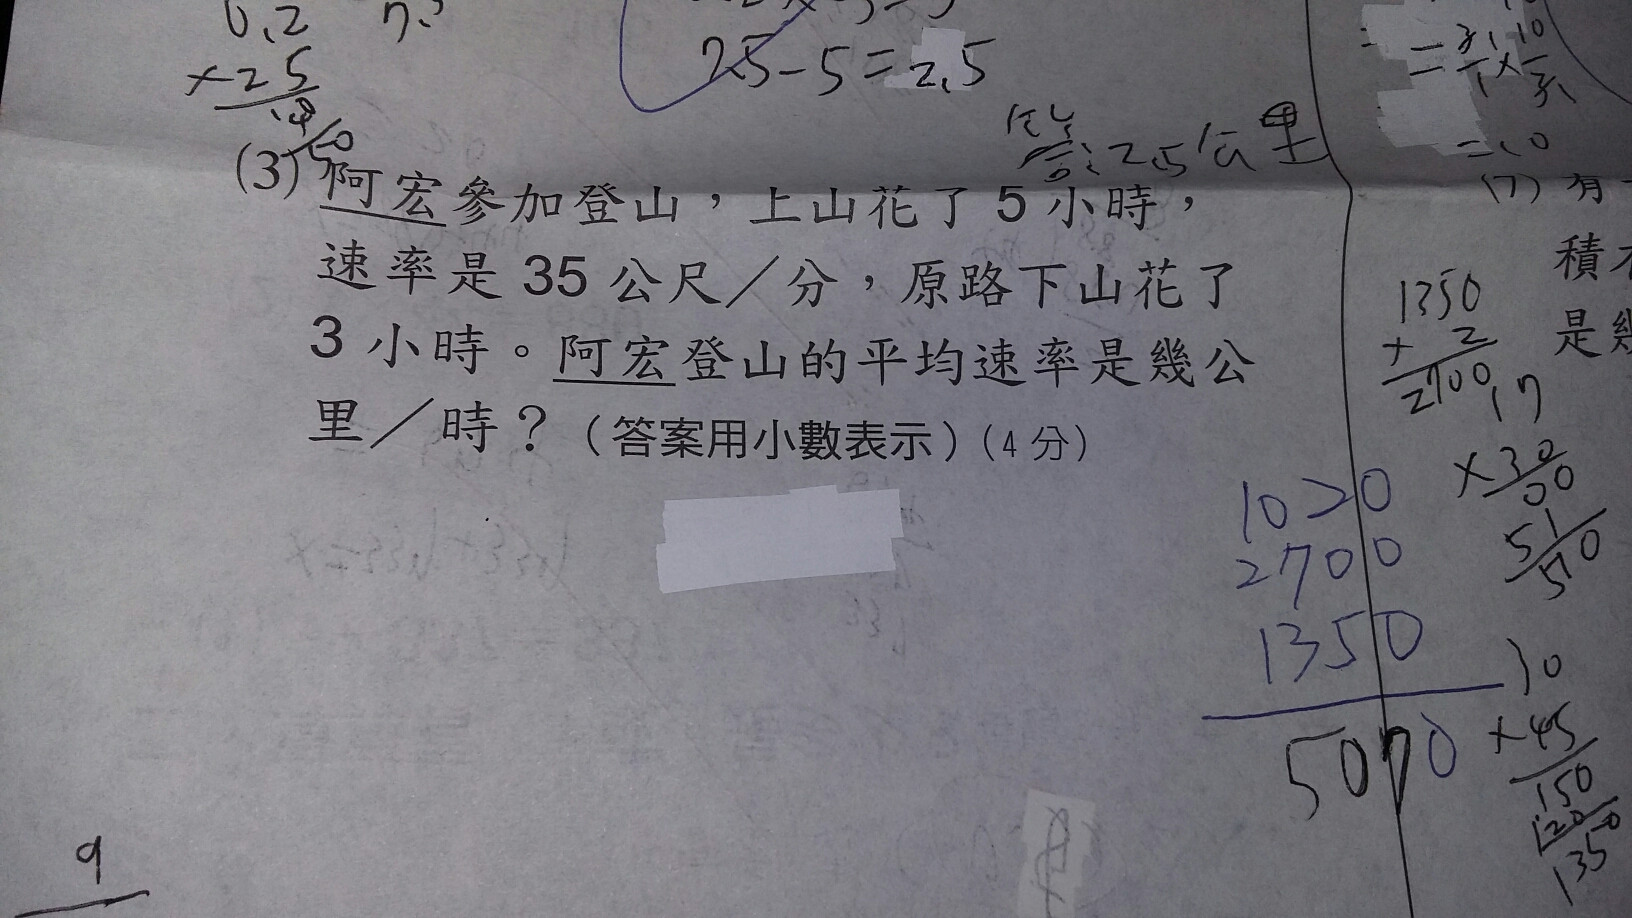 0.2
×25
25-5=2.5
答:2.5公里
(3) 阿宏參加登山，上山花了 5 小時，
速率是 35 公尺／分，原路下山花了
3 小時。阿宏登山的平均速率是幾公
里／時？（答案用小數表示）(4 分)
=10
(7) 有
積
是幾
1350
2700
17
×30
00
51
510
1020
2700
1350
5070
30
×45
150
120
1350
9